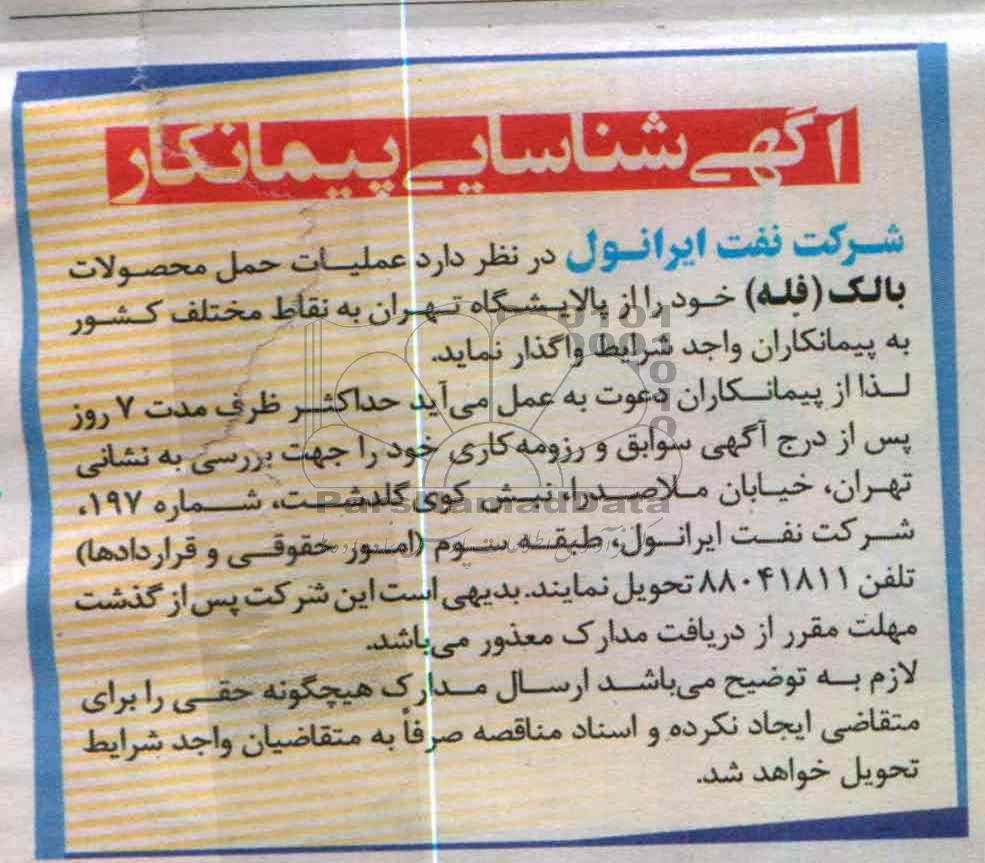 آگهی شناسایی پیمانکار
شرکت نفت ایرانول در نظر دارد عملیات حمل محصولات
بالک (فله) خود را از پالایشگاه تهران به نقاط مختلف کشور
به پیمانکاران واجد شرایط واگذار نماید.
لذا از پیمانکاران دعوت به عمل می‌آید حداکثر ظرف مدت ۷ روز
پس از درج آگهی سوابق و رزومه کاری خود را جهت بررسی به نشانی
تهران، خیابان ملاصدرا، نبش کوی گلدشت، شماره ۱۹۷،
شرکت نفت ایرانول، طبقه سوم (امور حقوقی و قراردادها)
تلفن ۸۸۰۴۱۸۱۱ تحویل نمایند. بدیهی است این شرکت پس از گذشت
مهلت مقرر از دریافت مدارک معذور می‌باشد.
لازم به توضیح می‌باشد ارسال مدارک هیچگونه حقی را برای
متقاضی ایجاد نکرده و اسناد مناقصه صرفاً به متقاضیان واجد شرایط
تحویل خواهد شد.
ParsNamadData